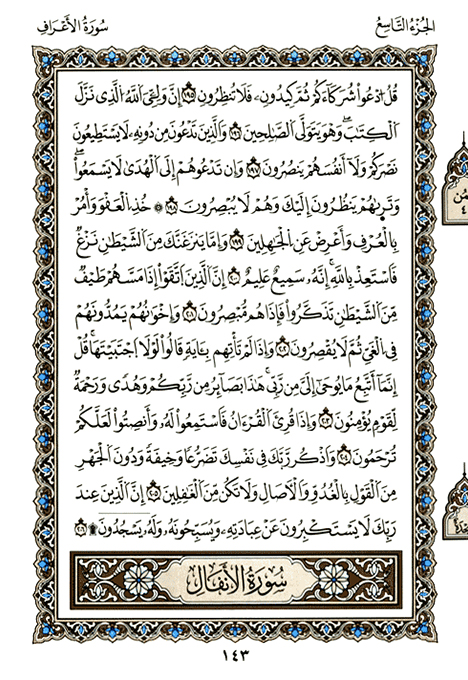 الجُزْءُ التَّاسِعُ
سُورَةُ الأَعْرَافِ
قُلِ ادْعُوا۟ شُرَكَآءَكُمْ ثُمَّ كِيدُونِ فَلَا تُنظِرُونِ ١٩٥ إِنَّ وَلِـِّۧىَ ٱللَّهُ ٱلَّذِى نَزَّلَ
ٱلْكِتَٰبَ ۖ وَهُوَ يَتَوَلَّى ٱلصَّٰلِحِينَ ١٩٦ وَٱلَّذِينَ تَدْعُونَ مِن دُونِهِۦ لَا يَسْتَطِيعُونَ
نَصْرَكُمْ وَلَآ أَنفُسَهُمْ يَنصُرُونَ ١٩٧ وَإِن تَدْعُوهُمْ إِلَى ٱلْهُدَىٰ لَا يَسْمَعُوا۟ ۖ
وَتَرَىٰهُمْ يَنظُرُونَ إِلَيْكَ وَهُمْ لَا يُبْصِرُونَ ١٩٨ ۞ خُذِ ٱلْعَفْوَ وَأْمُرْ
بِٱلْعُرْفِ وَأَعْرِضْ عَنِ ٱلْجَٰهِلِينَ ١٩٩ وَإِمَّا يَنزَغَنَّكَ مِنَ ٱلشَّيْطَٰنِ نَزْغٌ
فَٱسْتَعِذْ بِٱللَّهِ ۚ إِنَّهُۥ سَمِيعٌ عَلِيمٌ ٢٠٠ إِنَّ ٱلَّذِينَ ٱتَّقَوْا۟ إِذَا مَسَّهُمْ طَٰٓئِفٌ
مِّنَ ٱلشَّيْطَٰنِ تَذَكَّرُوا۟ فَإِذَا هُم مُّبْصِرُونَ ٢٠١ وَإِخْوَٰنُهُمْ يَمُدُّونَهُمْ
فِى ٱلْغَىِّ ثُمَّ لَا يُقْصِرُونَ ٢٠٢ وَإِذَا لَمْ تَأْتِهِم بِـَٔايَةٍ قَالُوا۟ لَوْلَا ٱجْتَبَيْتَهَا ۚ قُلْ
إِنَّمَآ أَتَّبِعُ مَا يُوحَىٰٓ إِلَىَّ مِن رَّبِّى ۚ هَٰذَا بَصَآئِرُ مِن رَّبِّكُمْ وَهُدًى وَرَحْمَةٌ
لِّقَوْمٍ يُؤْمِنُونَ ٢٠٣ وَإِذَا قُرِئَ ٱلْقُرْءَانُ فَٱسْتَمِعُوا۟ لَهُۥ وَأَنصِتُوا۟ لَعَلَّكُمْ
تُرْحَمُونَ ٢٠٤ وَٱذْكُر رَّبَّكَ فِى نَفْسِكَ تَضَرُّعًا وَخِيفَةً وَدُونَ ٱلْجَهْرِ
مِنَ ٱلْقَوْلِ بِٱلْغُدُوِّ وَٱلْءَاصَالِ وَلَا تَكُن مِّنَ ٱلْغَٰفِلِينَ ٢٠٥ إِنَّ ٱلَّذِينَ عِندَ
رَبِّكَ لَا يَسْتَكْبِرُونَ عَنْ عِبَادَتِهِۦ وَيُسَبِّحُونَهُۥ وَلَهُۥ يَسْجُدُونَ ۩ ٢٠٦
سُورَةُ الأَنْفَالِ
١٤٣